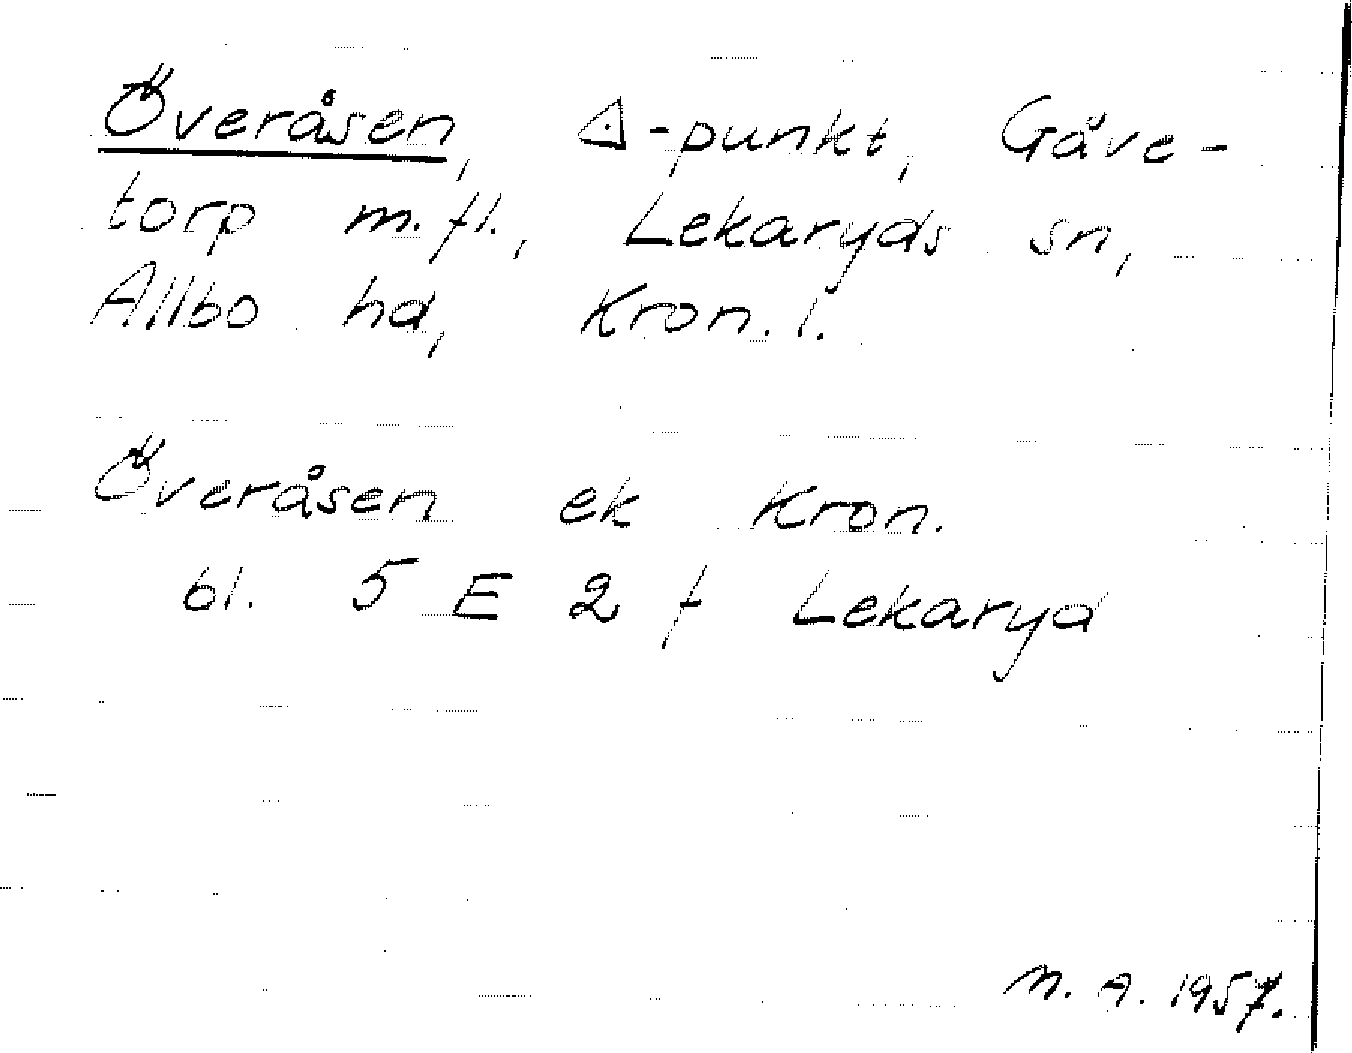 Överåsen, △-punkt, Gåve-
torp m.fl., Lekaryds sn,
Allbo hd, Kron. l.
Överåsen ek Kron.
bl. 5 E 2 f Lekaryd
M. A. 1957.